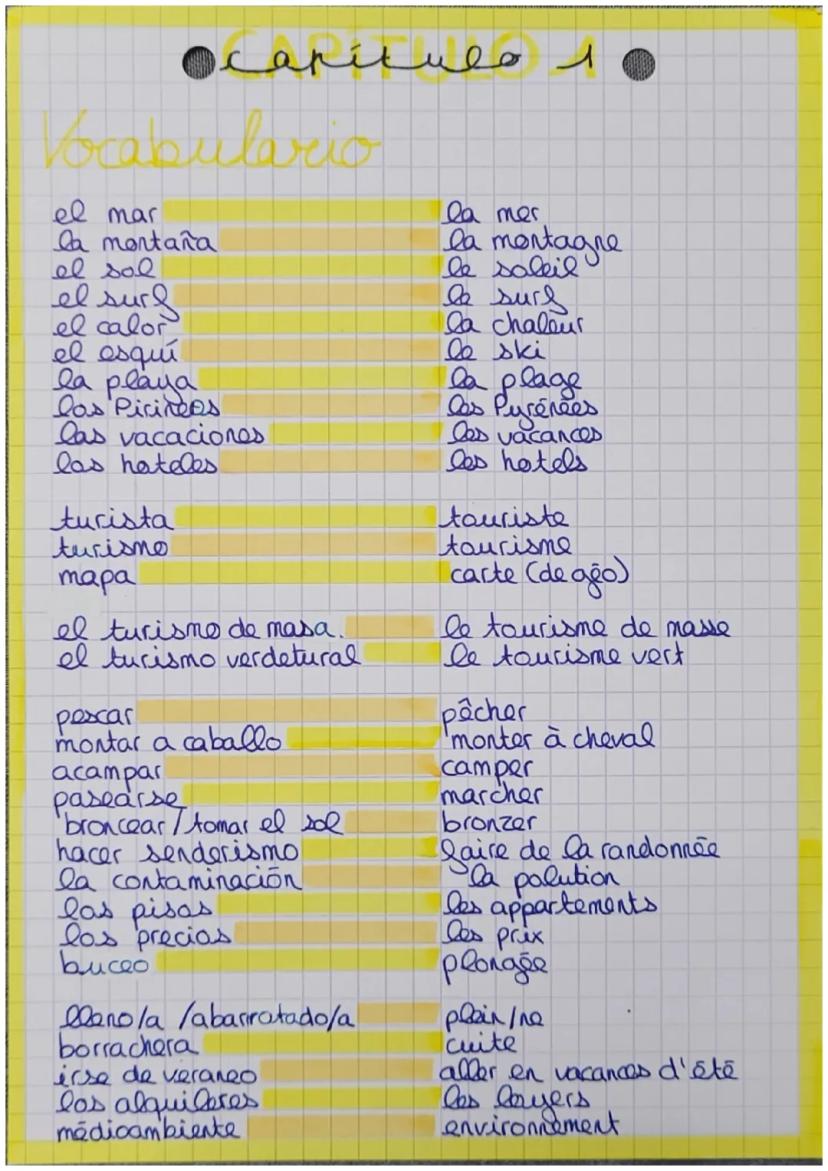 CAPÍTULO 1
capítulo 1
Vocabulario
el mar la mer
la montaña la montagne
el sol le soleil
el surf le surf
el calor la chaleur
el esquí le ski
la playa la plage
los Pirineos les Pyrénées
las vacaciones les vacances
los hoteles les hotels
turista touriste
turismo tourisme
mapa carte (de géo)
el turismo de masa. le tourisme de masse
el turismo verdetural le tourisme vert
pescar pêcher
montar a caballo monter à cheval
acampar camper
pasearse marcher
broncear/tomar el sol bronzer
hacer senderismo faire de la randonnée
la contaminación la polution
los pisos les appartements
los precios les prix
buceo plongée
lleno/a /abarratado/a plein/ne
borrachera cuite
irse de veraneo aller en vacances d'été
los alquileres les loyers
médioambiente environnement